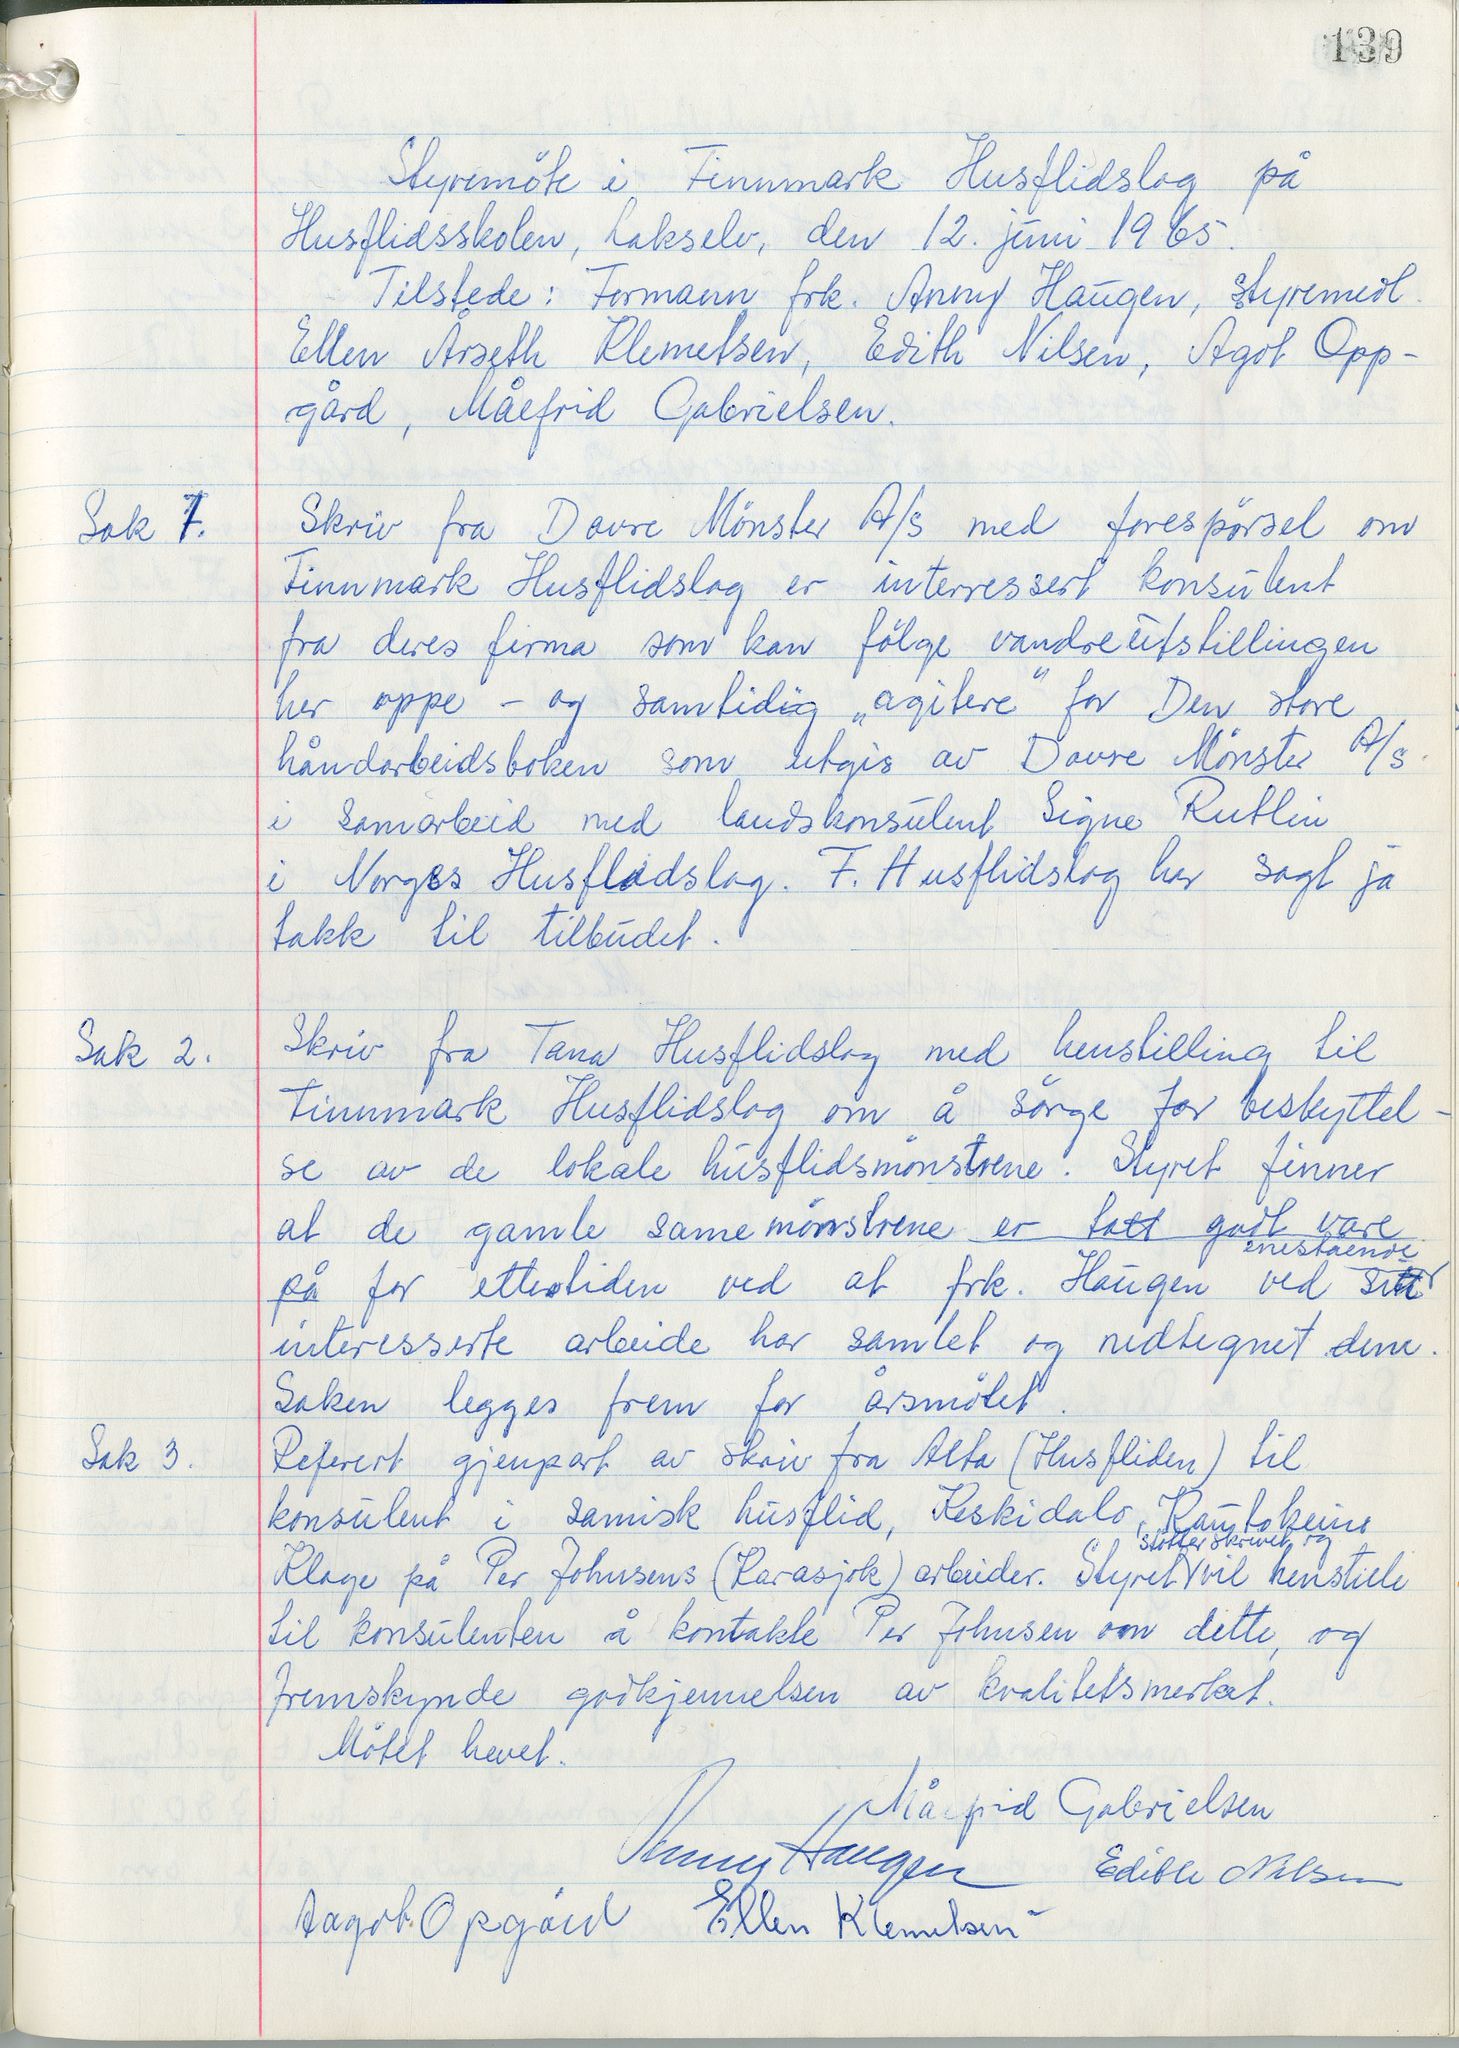 139
Styremöte i Finnmark Husflidslag på
Husflidsskolen, Lakselv, den 12. juni 1965.
Tilstede: Formann frk. Anny Haugen, Styremedl.
Ellen Årseth Klemetsen, Edith Nilsen, Agot Opp-
gård, Målfrid Gabrielsen.
Sak 1. Skriv fra Dovre Mönster A/S med forespörsel om
Finnmark Husflidslag er interressert konsulent
fra deres firma som kan fölge vandreutstillingen
her oppe - og samtidig „agitere" for Den store
håndarbeidsboken som utgis av Dovre Mönster A/S.
i samarbeid med landskonsulent Signe Rutlin
i Norges Husflidslag. F. Husflidslag har sagt ja
takk til tilbudet.
Sak 2. Skriv fra Tana Husflidslag med henstilling til
Finnmark Husflidslag om å sörge for beskyttel-
se av de lokale husflidsmönstrene. Styret finner
at de gamle samemönstrene er tatt godt vare
på for ettertiden ved at frk. Haugen ved sitt enestående
interesserte arbeide har samlet og nedtegnet dem.
Saken legges frem for årsmötet.
Sak 3. Referert gjenpart av skriv fra Alta (Husfliden) til
konsulent i samisk husflid, Keskidalo, Kautokeino
Klage på Per Johnsens (Karasjok) arbeider. Styret støtter skrivet og vil henstille
til konsulenten å kontakte Per Johnsen om dette, og
fremskynde godkjennelsen av kvalitetsmerket.
Mötet hevet.
Målfrid Gabrielsen
Anny Haugen Edith Nilsen
Aagot Opgård Ellen Klemetsen